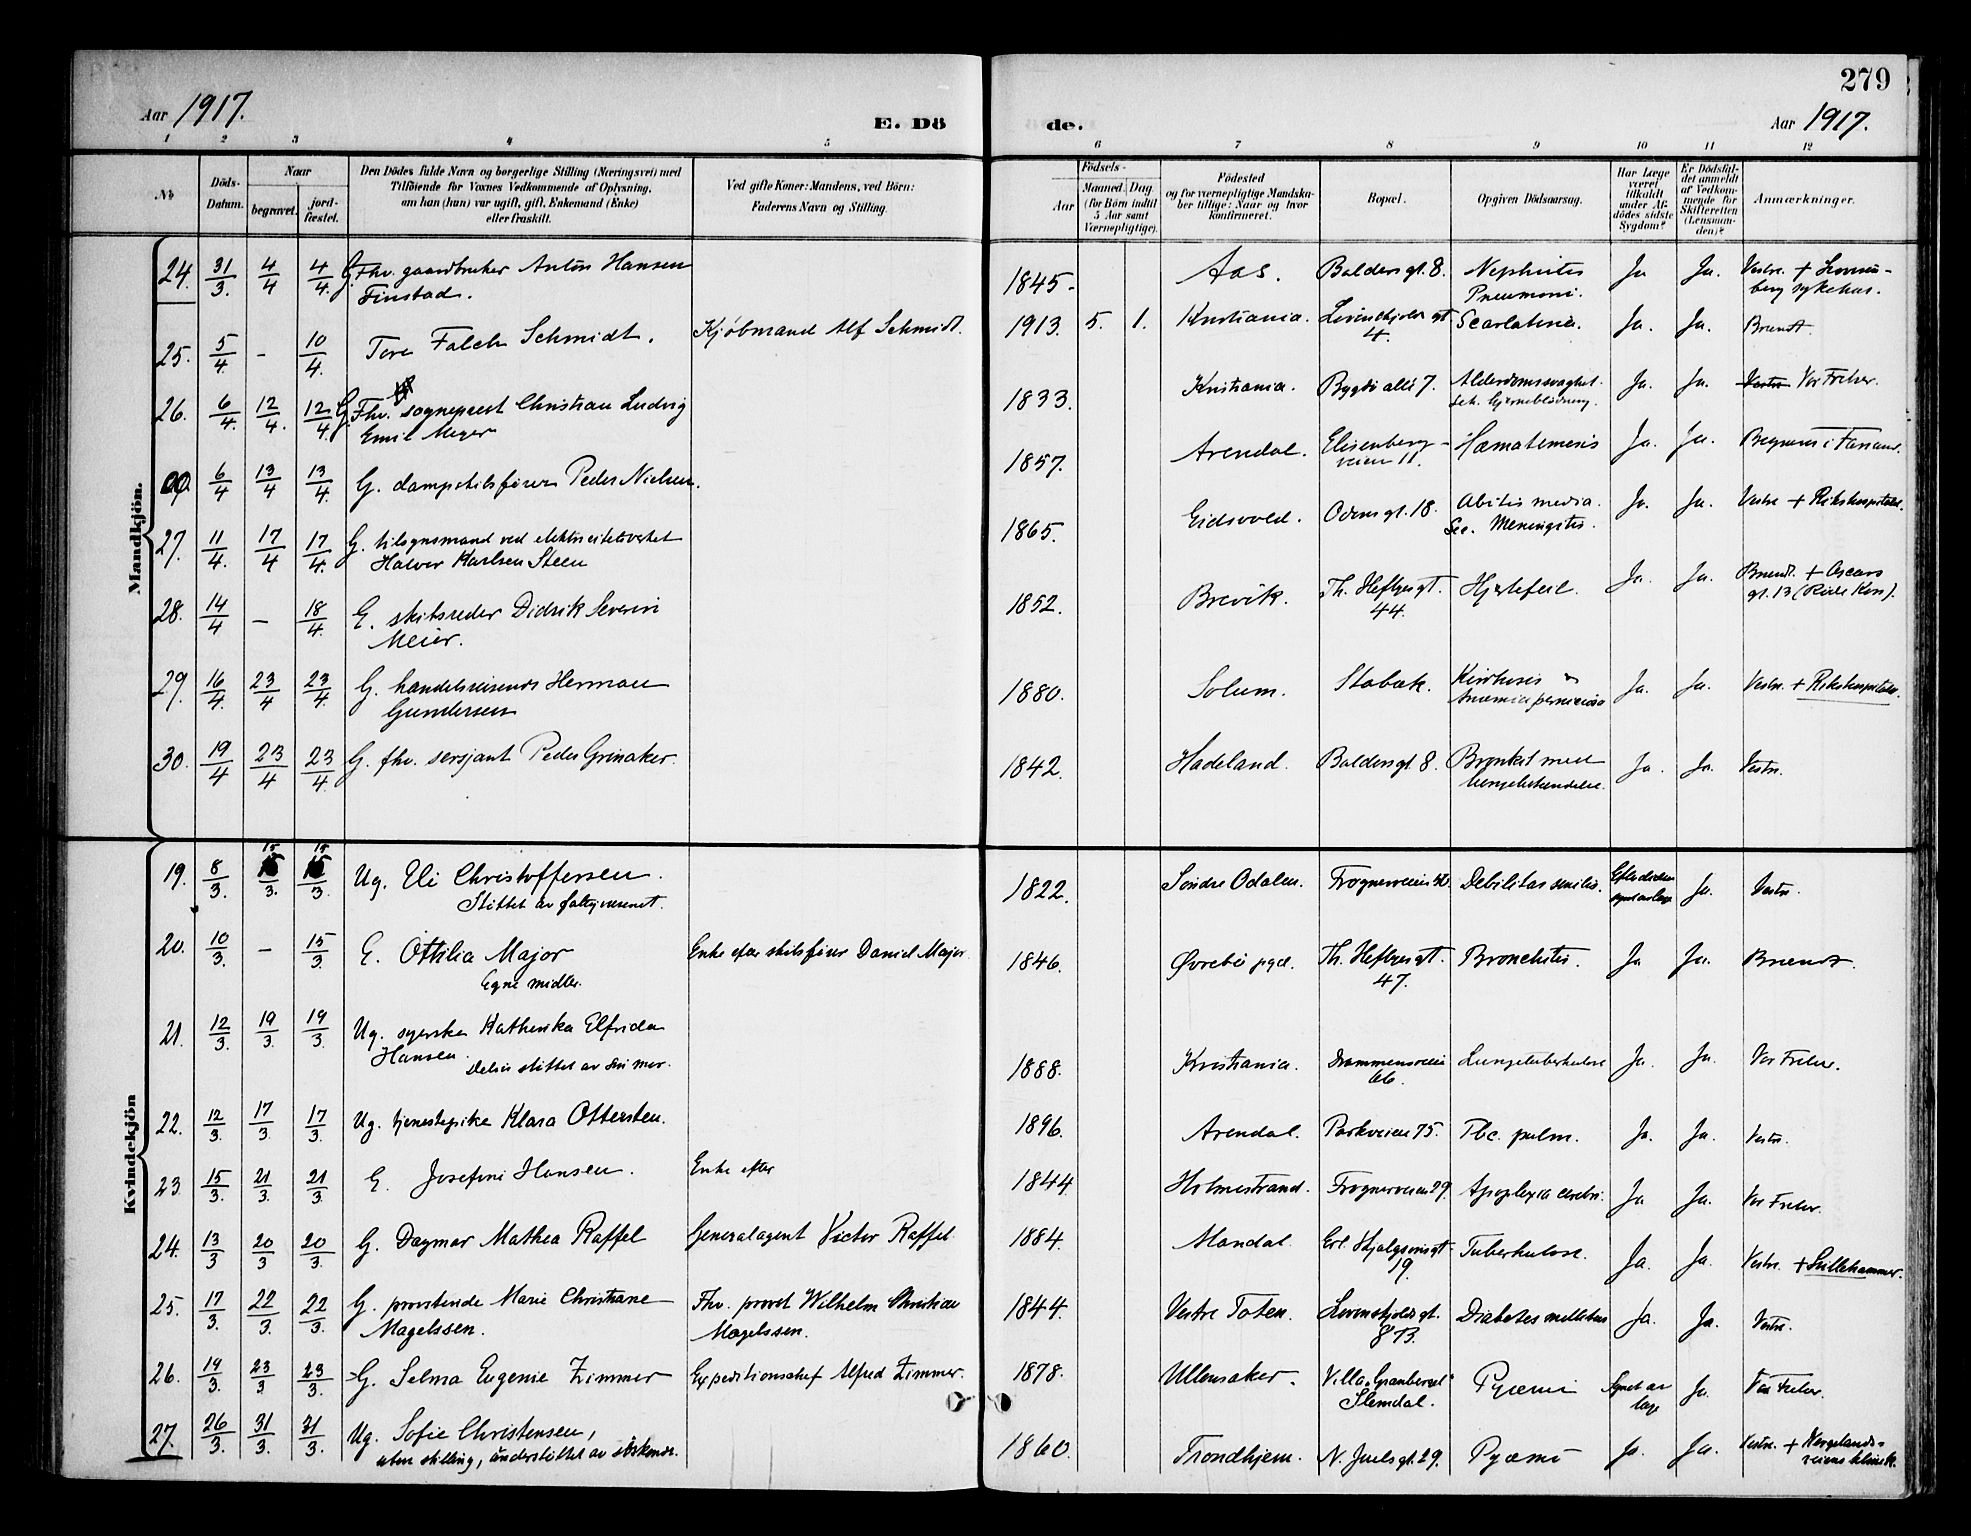 279
Aar 1917.
E. Dö
de.
Aar 1917.
1 2 3 4 5 6 7 8 9 10 11 12
No
Döds-
Datum.
Naar
begravet.
jord-
fæstet.
Den Dödes fulde Navn og borgerlige Stilling (Næringsvei) med
Tilföiende for Voxnes Vedkommende af Oplysning,
om han (hun) var ugift, gift, Enkemand (Enke)
eller fraskilt.
Ved gifte Koner: Mandens, ved Börn:
Faderens Navn og Stilling.
Födsels-
Aar
Maaned. Dag.
(for Börn indtil
5 Aar samt
Værnepligtige).
Födested
og for værnepligtige Mandska-
ber tillige: Naar og hvor
konfirmeret.
Bopæl.
Opgiven Dödsaarsag.
Har Læge
været
tilkaldt
under Af-
dödes sidste
Sygdom?
Er Dödsfal-
det anmeldt
af Vedkom-
mende for
Skifteretten
(Lensman-
den)?
Anmærkninger.
Mandkjön.
24. 31/3. 4/4 4/4. G. Fhv. gaardbruker Anton Hansen 1845. Aas. Baldersgt. 8. Nephritis Ja Ja. Vestre. + Lovisen-
Finstad. Pneumoni. berg sykehus.
25. 5/4 – 10/4. Tore Falch Schmidt. Kjøbmand Alf Schmidt. 1913. 5. 1. Kristiania. Løvenskjolds gt. Scarlatina. Ja. Ja. Brændt.
4.
26. 6/4. 12/4. 12/4. G. Fhv. sogneprest Christian Ludvig 1833. Kristiania. Bygdø allé 7. Alderdomssvaghet. Ja. Ja. Vestre Vor Frelser.
Emil Meyer Hjerneblødning.
6/4 13/4 13/4. G. dampskibsfører Peder Nielsen. 1857. Arendal. Elisenberg- Hæmatemesis Ja. Ja.
veien 11.
27. 11/4. 17/4 17/4. G. tilsynsmand ved elektricitetsverket 1865. Eidsvold. Odinsgt. 18. media. Ja. Ja. Vestre + Rikshospitalet.
Halvor Karlsen Steen Sec. Meningitis.
28. 14/4 – 18/4. E. skibsreder Didrik Severin 1852. Brevik. Th. Heftyesgt. Hjertefeil. Ja. Ja. Brændt. + Oscars
Meier. 44. gt. 13 (Røde Kors).
29. 16/4. 23/4 23/4. G. handelsreisende Herman 1880. Solum. Stabæk. Ja. Ja. Vestre. + Rikshospitalet.
Gundersen Anæmia perniciosa
30. 19/4 23/4 23/4. G. fhv. sersjant Peder Grinaker. 1842. Hadeland. Baldersgt. 8. Bronkit med Ja. Ja. Vestre.
lungebetændelse.
Kvindekjön
19. 8/3. 15/3. 15/3 Ug. Eli Christoffersen. 1822. Söndre Odalen. Frognerveien Debilitas senilis. Ja. Vestre.
Støttet av fattigvæsenet.
20. 10/3. – 15/3. E. Ottilia Major Enke efter skibsfører Daniel Major. 1846. Øvrebø pgd. Th. Heftyesgt. Bronchitis. Ja Ja. Brændt.
Egne midler. 47.
21. 12/3. 19/3. 19/3. Ug. syerske Kathinka Elfrida 1888. Kristiania. Drammensveien Lungetuberkulose Ja. Ja. Vor Frelser.
Hansen. Delvis støttet av sin mor. 66.
22. 12/3. 17/3. 17/3. Ug. tjenestepike Klara Ottersten. 1896. Arendal. Parkveien 75. Tbc. pulm. Ja. Ja. Vestre.
23. 15/3. 21/3. 21/3 E. Josefine Hansen. Enke efter 1844. Holmestrand. Frognerveien 29. Apoplexia cerebri. Ja Ja. Vor Frelser.
24. 13/3 20/3 20/3. G. Dagmar Mathea Raffel Generalagent Victor Raffel. 1884. Mandal. Erl. Skjalgsønsgt. Tuberkulose. Ja. Ja. Vestre. + Lillehammer.
19.
25. 17/3. 22/3. 22/3. G. provstinde Marie Christiane Fhv. provst Wilhelm Christian 1844. Vestre Toten. Løvenskjolds gt. Diabetes mellitus Ja. Ja. Vestre.
Magelssen. Magelssen. 8 B.
26. 19/3. 23/3 23/3. G. Selma Eugenie Zimmer Expeditionschef Alfred Zimmer. 1878. Ullensaker. Villa Pyæmi Synet av Ja. Vor Frelser.
Slemdal. læge
27. 26/3. 31/3. 31/3. Ug. Sofie Christensen, 1860. Trondhjem. N. Juelsgt. 29. Pyæmi Ja. Ja. Vestre. + Wergelands-
uten stilling, understøttet av søskende. veiens klinik.